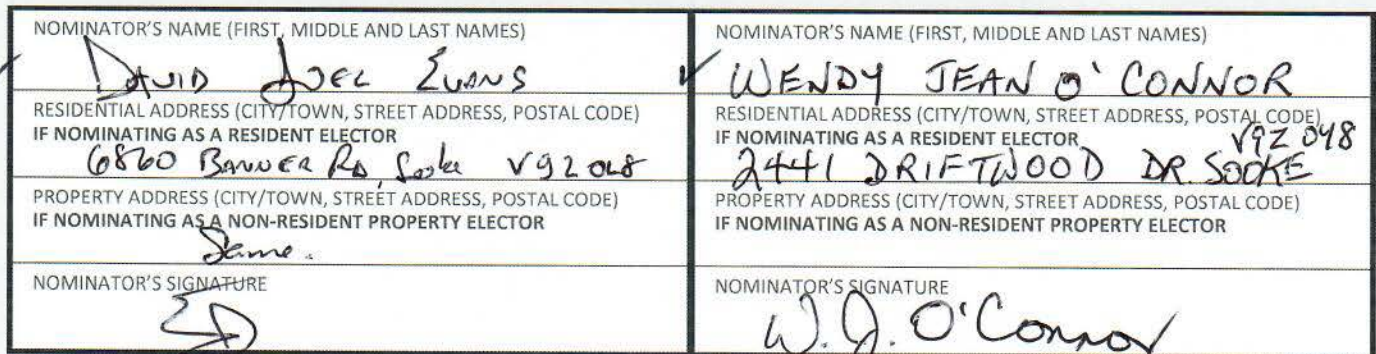 NOMINATOR'S NAME (FIRST, MIDDLE AND LAST NAMES)
DAVID JOEL EVANS
RESIDENTIAL ADDRESS (CITY/TOWN, STREET ADDRESS, POSTAL CODE)
IF NOMINATING AS A RESIDENT ELECTOR
6860 BANNER RD, Sooke V9Z
PROPERTY ADDRESS (CITY/TOWN, STREET ADDRESS, POSTAL CODE)
IF NOMINATING AS A NON-RESIDENT PROPERTY ELECTOR
Same.
NOMINATOR'S SIGNATURE
NOMINATOR'S NAME (FIRST, MIDDLE AND LAST NAMES)
✓ WENDY JEAN O'CONNOR
RESIDENTIAL ADDRESS (CITY/TOWN, STREET ADDRESS, POSTAL CODE)
IF NOMINATING AS A RESIDENT ELECTOR V9Z
2441 DRIFTWOOD DR. SOOKE
PROPERTY ADDRESS (CITY/TOWN, STREET ADDRESS, POSTAL CODE)
IF NOMINATING AS A NON-RESIDENT PROPERTY ELECTOR
NOMINATOR'S SIGNATURE
W.J. O'Connor